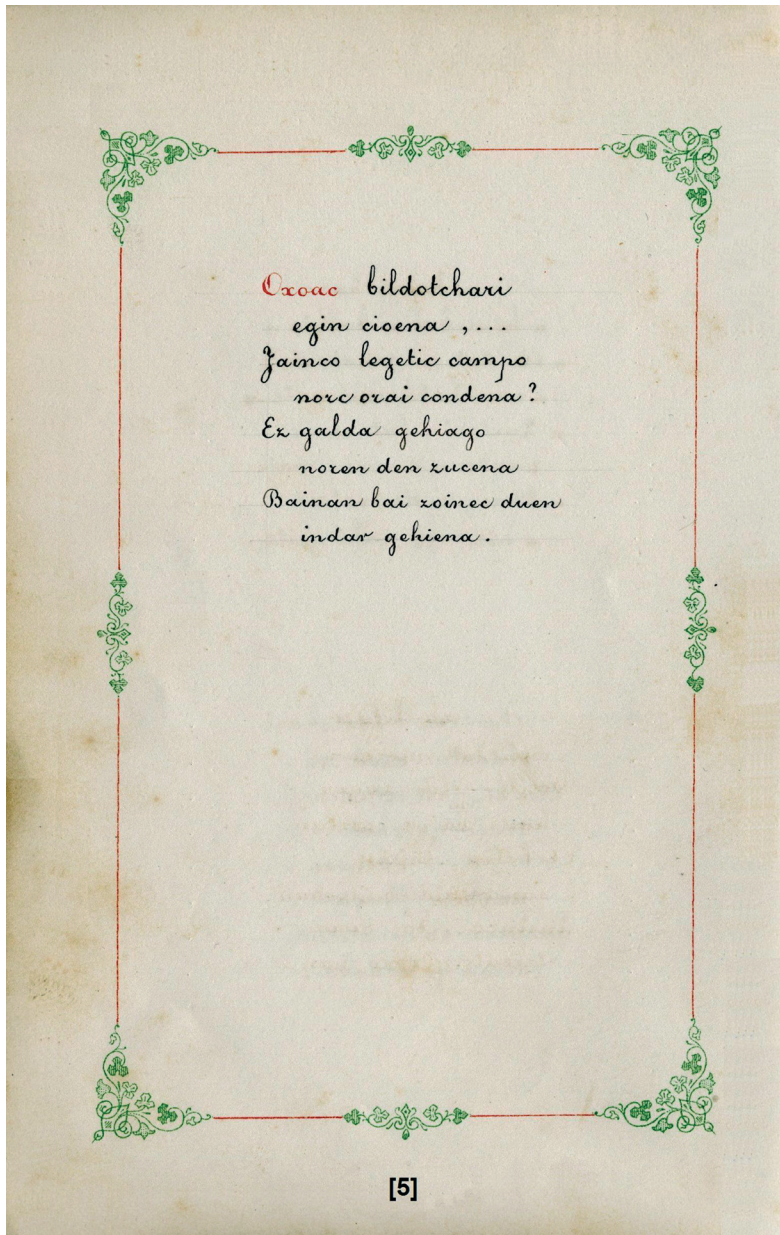 Oxoac bildotchari
egin cioena , ...
Jainco legetic campo
norc orai condena ?
Ez galda gehiago
noren den zucena
Bainan bai zoinec duen
indar gehiena .
[5]